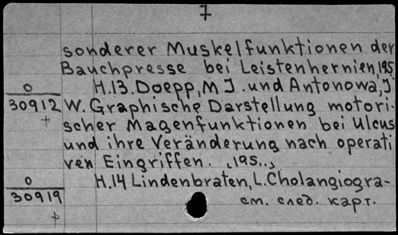 7
sonderer Muskelfunktionen der
Bauchpresse bei Leistenhernien, 195
0 H.13. Doepp, M J. und Antonowa, J
30912 W. Graphische Darstellung motori-
+ scher Magenfunktionen bei Ulcus
und ihre Veränderung nach operati
ven Eingriffen. ,195..,
0 H.14 Lindenbraten, L. Cholangiogra-
30919 см. след. карт.
+